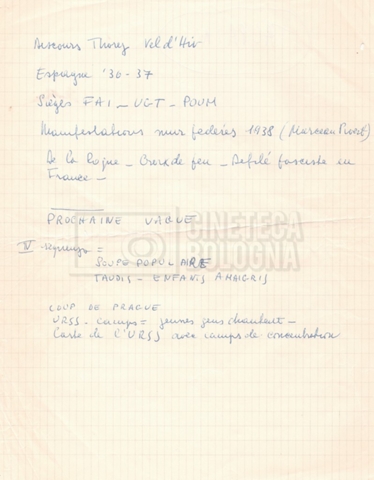 Discours Thorez Vel d'Hiv
Espagne '36-37
Sièges FAI _ UGT _ POUM
Manifestations mur fédérés 1938 (Marceau Pivert)
De la Roque _ Croix de feu _ Défilé fasciste en
France _
PROCHAINE VAGUE
IV séquenza =
SOUPE POPULAIRE
TAUDIS - ENFANTS AMAIGRIS
COUP DE PRAGUE
URSS - camps = jeunes gens chantent _
Carte de l'URSS avec camps de concentration
CINETECA
BOLOGNA